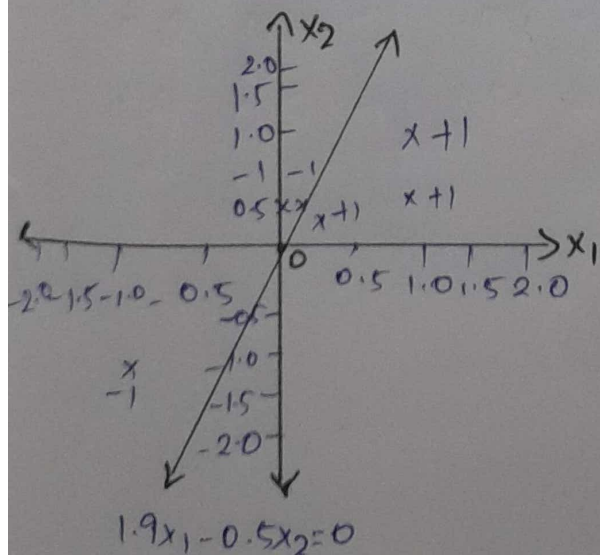 x2
2.0
1.5
1.0 x +1
-1 -1
0.5 x x x +1 x +1
x1
0
-2.0 -1.5 -1.0 -0.5 0.5 1.0 1.5 2.0
-0.5
x -1.0
-1 -1.5
-2.0
1.9x1 - 0.5x2 = 0